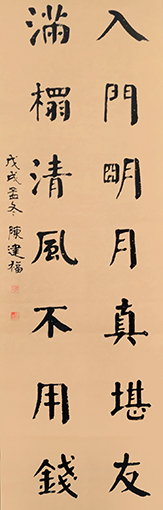 入門明月真堪友
滿榻清風不用錢
戊戌孟冬 陳建福